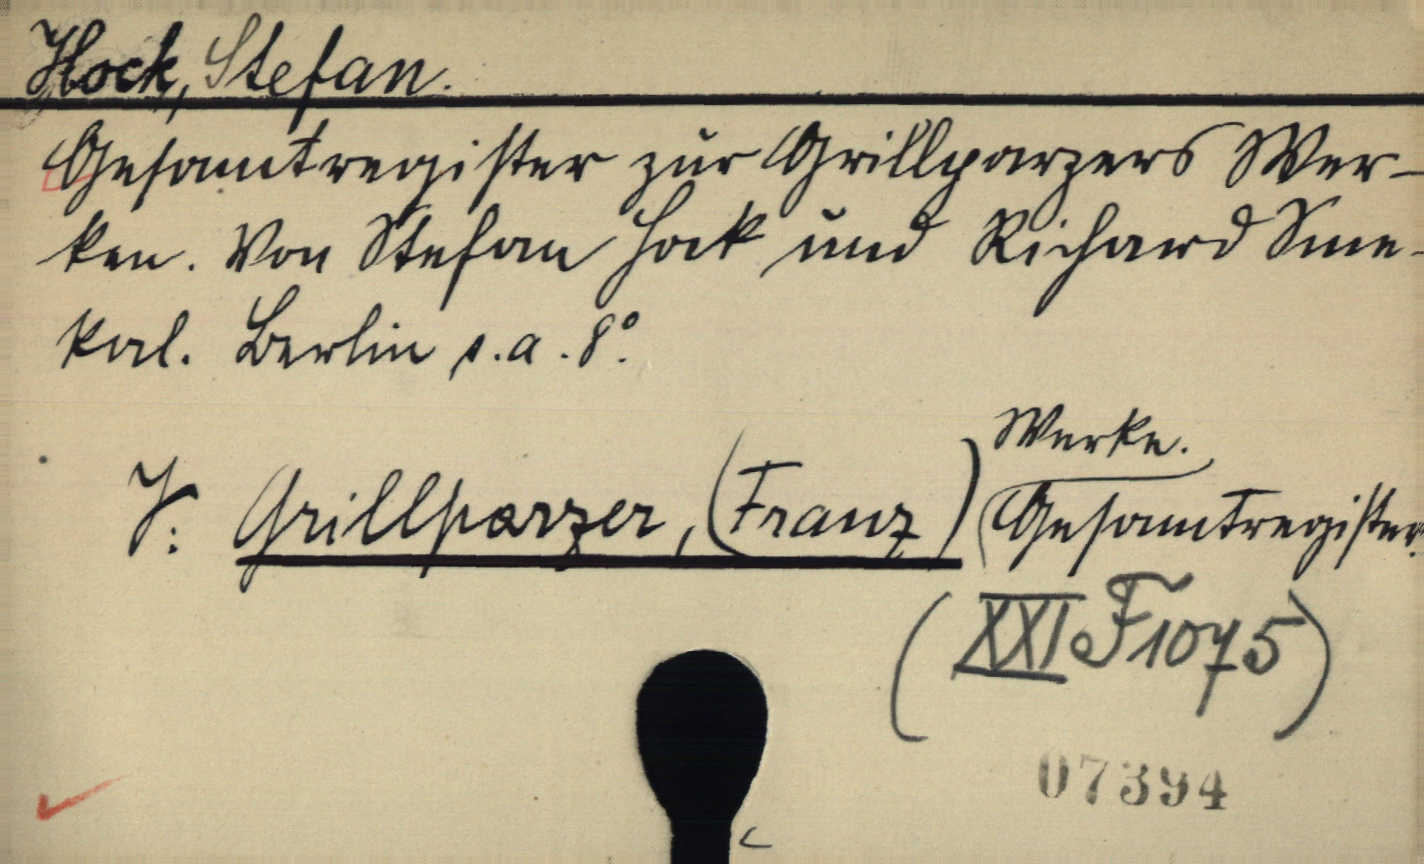 Hock, Stefan.
Gesamtregister zur Grillparzers Wer-
ken. Von Stefan Hock und Richard Sme-
kal. Berlin s. a. 8°.
Werke.
J: Grillparzer, (Franz) Gesamtregister
(XXI. F 1075)
07394